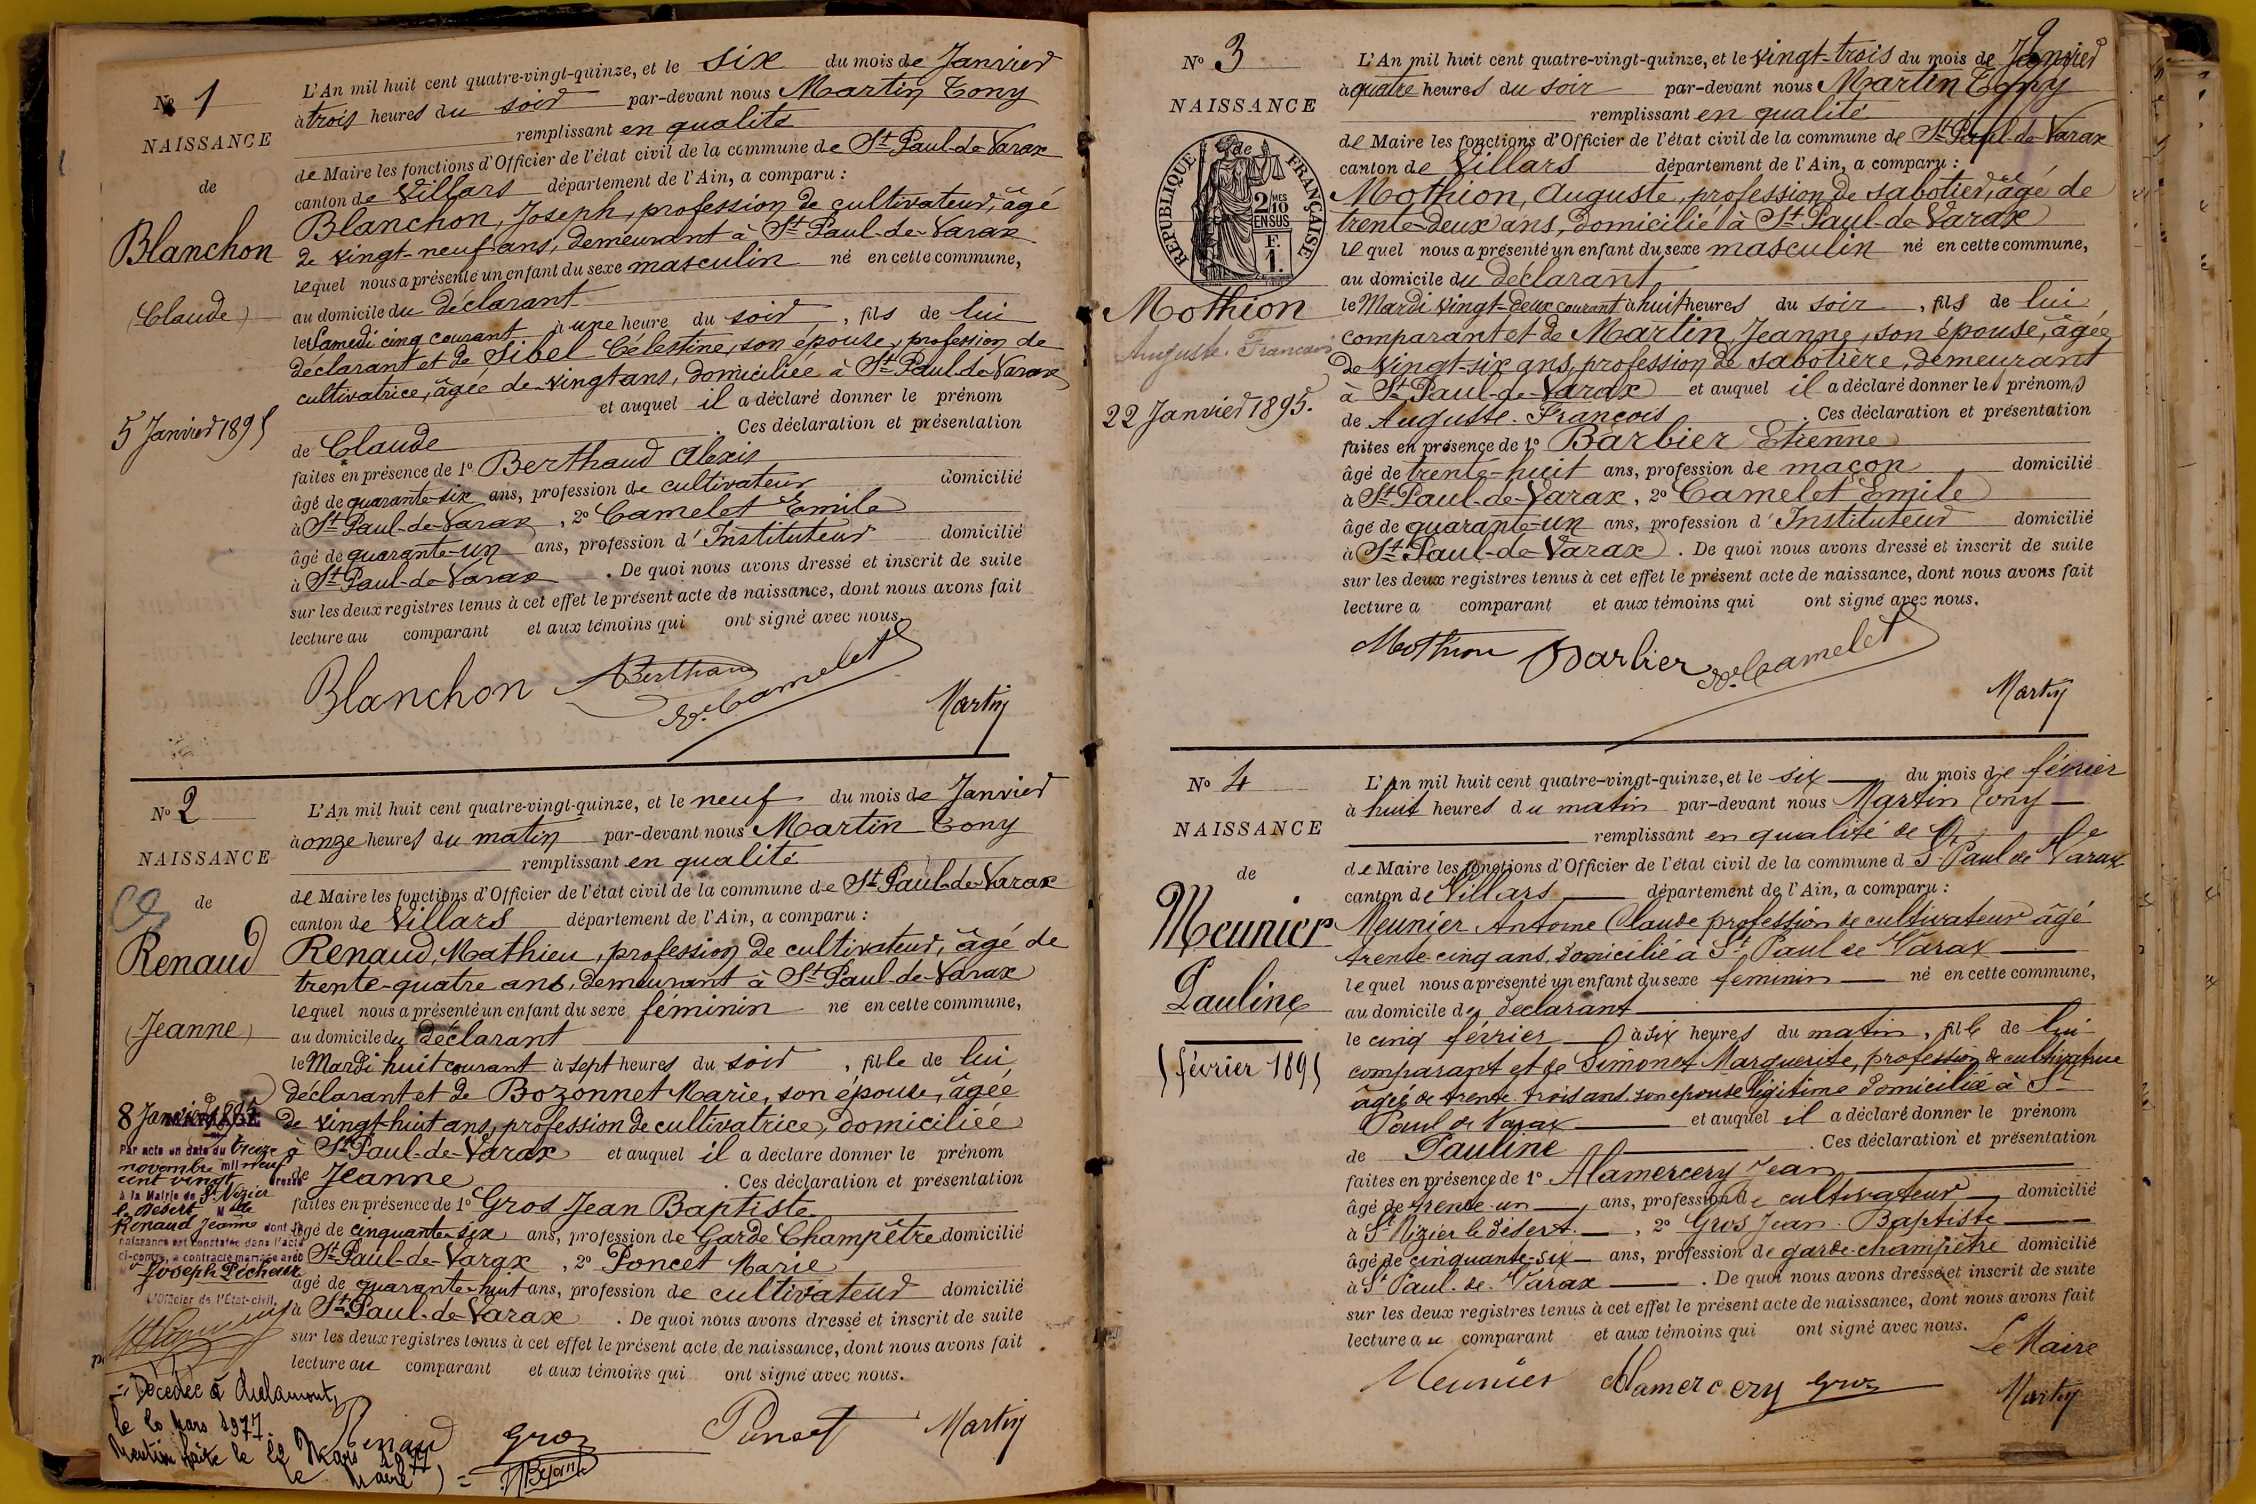 No 1
NAISSANCE
de
Blanchon
(Claude)
5 Janvier 1895
L'An mil huit cent quatre-vingt-quinze, et le six du mois de Janvier
à trois heures du soir par-devant nous Martin Tony
remplissant en qualité
de Maire les fonctions d'Officier de l'état civil de la commune de St Paul-de-Varax
canton de Villars département de l'Ain, a comparu :
Blanchon, Joseph, profession de cultivateur, âgé
de vingt-neuf ans, demeurant à St Paul-de-Varax
lequel nous a présenté un enfant du sexe masculin né en cette commune,
au domicile du déclarant
le Samedi cinq courant à une heure du soir, fils de lui
déclarant et de Sibel Célestine, son épouse, profession de
cultivatrice, âgée de vingt ans, domiciliée à St Paul-de-Varax
et auquel il a déclaré donner le prénom
de Claude. Ces déclaration et présentation
faites en présence de 1o Berthaud Alexis
âgé de quarante-six ans, profession de cultivateur domicilié
à St Paul-de-Varax, 2o Camelet Emile
âgé de quarante-un ans, profession d'Instituteur domicilié
à St Paul-de-Varax. De quoi nous avons dressé et inscrit de suite
sur les deux registres tenus à cet effet le présent acte de naissance, dont nous avons fait
lecture au comparant et aux témoins qui ont signé avec nous.
Blanchon ABerthaud Camelet
Martin
No 2
NAISSANCE
de
Renaud
(Jeanne)
8 Janvier 1895
MARIAGE
Par acte en date du treize
novembre mil neuf
cent vingt dressé
à la Mairie de St Nizier
le Désert Melle
Renaud Jeanne dont la
naissance est constatée dans l'acte
ci-contre, a contracté mariage avec
Mr Joseph Pécheur
L'Officier de l'État-civil,
Décédée à Chalamont
le 20 Mars 1977.
Mention faite le 22 Mars 1977
le Maire
L'An mil huit cent quatre-vingt-quinze, et le neuf du mois de Janvier
à onze heures du matin par-devant nous Martin Tony
remplissant en qualité
de Maire les fonctions d'Officier de l'état civil de la commune de St Paul-de-Varax
canton de Villars département de l'Ain, a comparu :
Renaud, Mathieu, profession de cultivateur, âgé de
trente-quatre ans, demeurant à St Paul-de-Varax
lequel nous a présenté un enfant du sexe féminin né en cette commune,
au domicile du déclarant
le Mardi huit courant à sept heures du soir, fille de lui
déclarant et de Bozonnet Marie, son épouse, âgée
de vingt-huit ans, profession de cultivatrice, domiciliée
à St Paul-de-Varax et auquel il a déclaré donner le prénom
de Jeanne. Ces déclaration et présentation
faites en présence de 1o Gros Jean Baptiste
âgé de cinquante-six ans, profession de Garde Champêtre domicilié
à St Paul-de-Varax, 2o Poncet Marie
âgé de quarante-huit ans, profession de cultivateur domicilié
à St Paul-de-Varax. De quoi nous avons dressé et inscrit de suite
sur les deux registres tenus à cet effet le présent acte de naissance, dont nous avons fait
lecture au comparant et aux témoins qui ont signé avec nous.
Renaud Gros Poncet Martin
2
No 3
NAISSANCE
de
RÉPUBLIQUE FRANÇAISE
2/10MES
EN SUS
F.
1.
Mothion
Auguste. Francois
22 Janvier 1895.
L'An mil huit cent quatre-vingt-quinze, et le vingt-trois du mois de Janvier
à quatre heures du soir par-devant nous Martin Tony
remplissant en qualité
de Maire les fonctions d'Officier de l'état civil de la commune de St Paul-de-Varax
canton de Villars département de l'Ain, a comparu :
Mothion, Auguste, profession de sabotier, âgé de
trente-deux ans, domicilié à St Paul-de-Varax
lequel nous a présenté un enfant du sexe masculin né en cette commune,
au domicile du déclarant
le Mardi vingt-deux courant à huit heures du soir, fils de lui
comparant et de Martin, Jeanne, son épouse, âgée
de vingt-six ans, profession de sabotière, demeurant
à St Paul-de-Varax et auquel il a déclaré donner les prénoms
de Auguste. François. Ces déclaration et présentation
faites en présence de 1o Barbier Etienne
âgé de trente-huit ans, profession de maçon domicilié
à St Paul-de-Varax, 2o Camelet Emile
âgé de quarante-un ans, profession d'Instituteur domicilié
à St Paul-de-Varax. De quoi nous avons dressé et inscrit de suite
sur les deux registres tenus à cet effet le présent acte de naissance, dont nous avons fait
lecture a comparant et aux témoins qui ont signé avec nous.
Mothion Barbier Camelet
Martin
No 4
NAISSANCE
de
Meunier
Pauline
5 février 1895
L'An mil huit cent quatre-vingt-quinze, et le six du mois de février
à huit heures du matin par-devant nous Martin Tony
remplissant en qualité de
de Maire les fonctions d'Officier de l'état civil de la commune d St Paul de Varax
canton de Villars département de l'Ain, a comparu :
Meunier Antoine Claude profession de cultivateur âgé
trente cinq ans, domicilié à St Paul de Varax
lequel nous a présenté un enfant du sexe féminin né en cette commune,
au domicile du déclarant
le cinq février à six heures du matin, fille de lui
comparant et de Simonet Marguerite, profession de cultivatrice
âgée de trente-trois ans, son épouse légitime domiciliée à St
Paul de Varax et auquel il a déclaré donner le prénom
de Pauline. Ces déclaration et présentation
faites en présence de 1o Alamercery Jean
âgé de trente-un ans, profession de cultivateur domicilié
à St Nizier le désert, 2o Gros Jean-Baptiste
âgé de cinquante-six ans, profession de garde-champêtre domicilié
à St Paul-de-Varax. De quoi nous avons dressé et inscrit de suite
sur les deux registres tenus à cet effet le présent acte de naissance, dont nous avons fait
lecture au comparant et aux témoins qui ont signé avec nous.
Le Maire
Meunier Alamercery Gros Martin